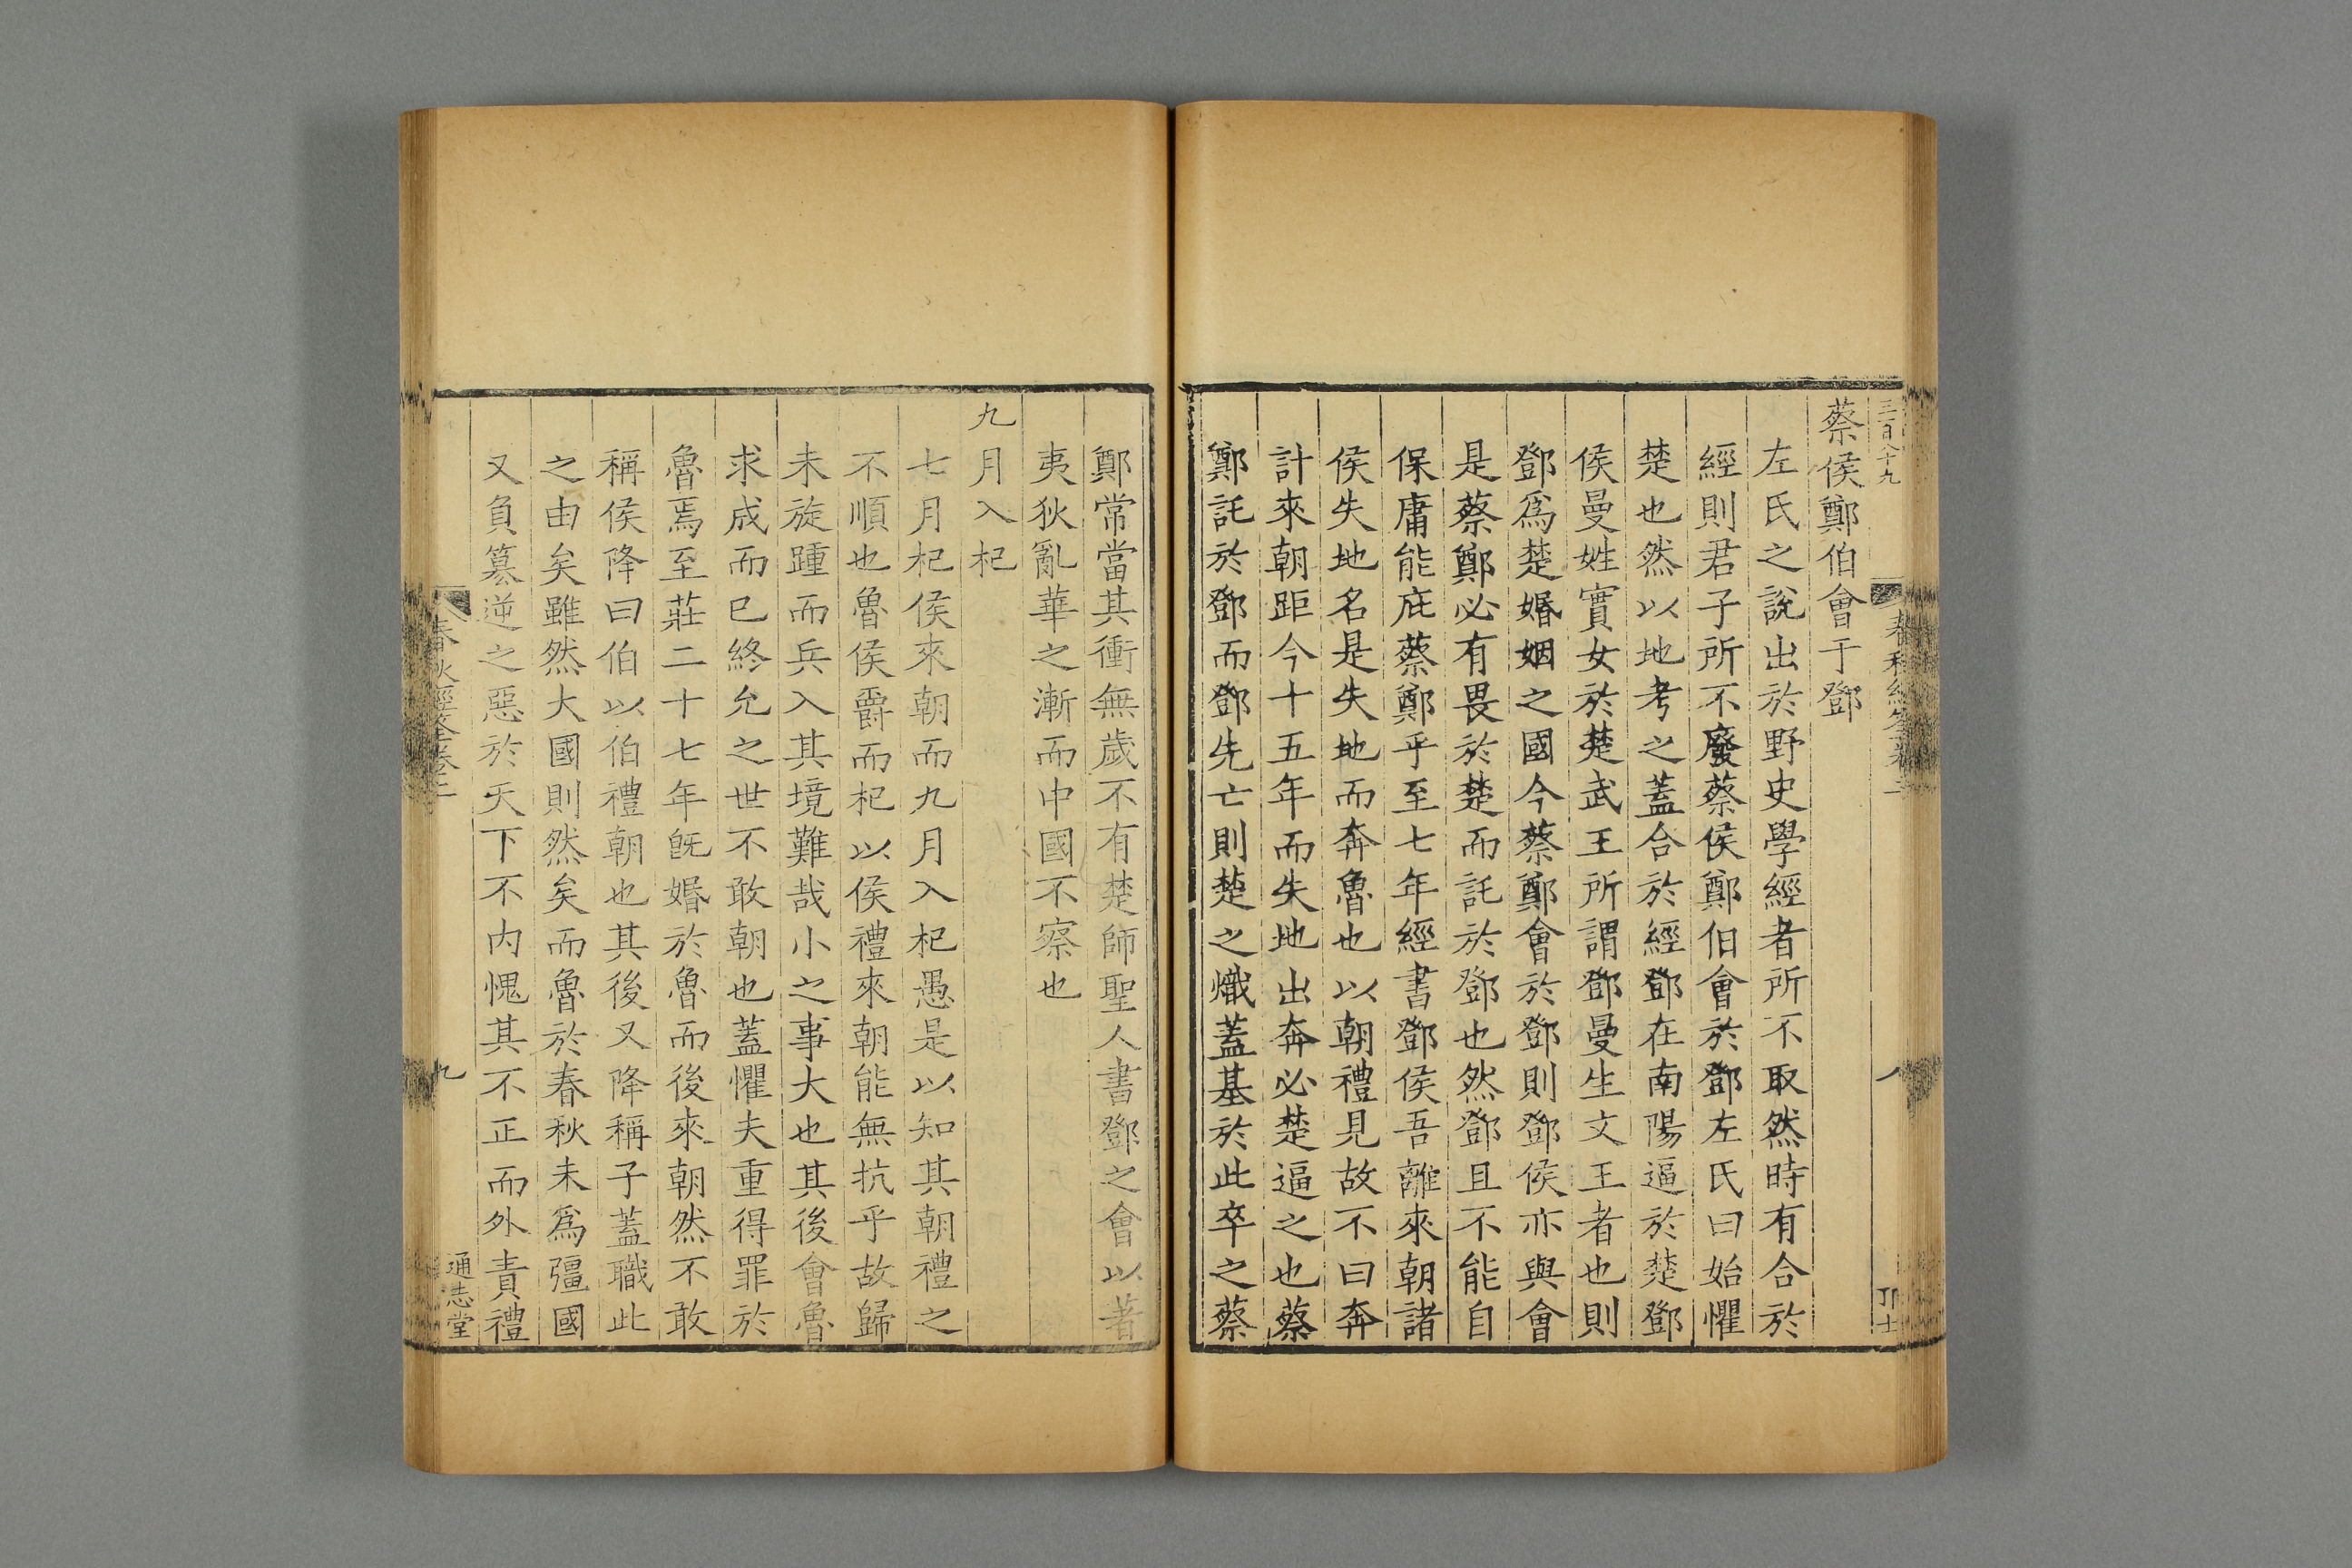 三百八十九
春秋經筌卷二
八
蔡侯鄭伯會于鄧
左氏之說出於野史學經者所不取然時有合於
經則君子所不廢蔡侯鄭伯會於鄧左氏曰始懼
楚也然以地考之蓋合於經鄧在南陽逼於楚鄧
侯曼姓實女於楚武王所謂鄧曼生文王者也則
鄧爲楚婚姻之國今蔡鄭會於鄧則鄧侯亦與會
是蔡鄭必有畏於楚而託於鄧也然鄧且不能自
保庸能庇蔡鄭乎至七年經書鄧侯吾離來朝諸
侯失地名是失地而奔魯也以朝禮見故不曰奔
計來朝距今十五年而失地出奔必楚逼之也蔡
鄭託於鄧而鄧先亡則楚之熾蓋基於此卒之蔡
鄭常當其衝無歲不有楚師聖人書鄧之會以著
夷狄亂華之漸而中國不察也
九月入杞
七月杞侯來朝而九月入杞愚是以知其朝禮之
不順也魯侯爵而杞以侯禮來朝能無抗乎故歸
未旋踵而兵入其境難哉小之事大也其後會魯
求成而已終允之世不敢朝也蓋懼夫重得罪於
魯焉至莊二十七年旣婚於魯而後來朝然不敢
稱侯降曰伯以伯禮朝也其後又降稱子蓋職此
之由矣雖然大國則然矣而魯於春秋未爲彊國
又負篡逆之惡於天下不內愧其不正而外責禮
春秋經筌卷二
九
通志堂